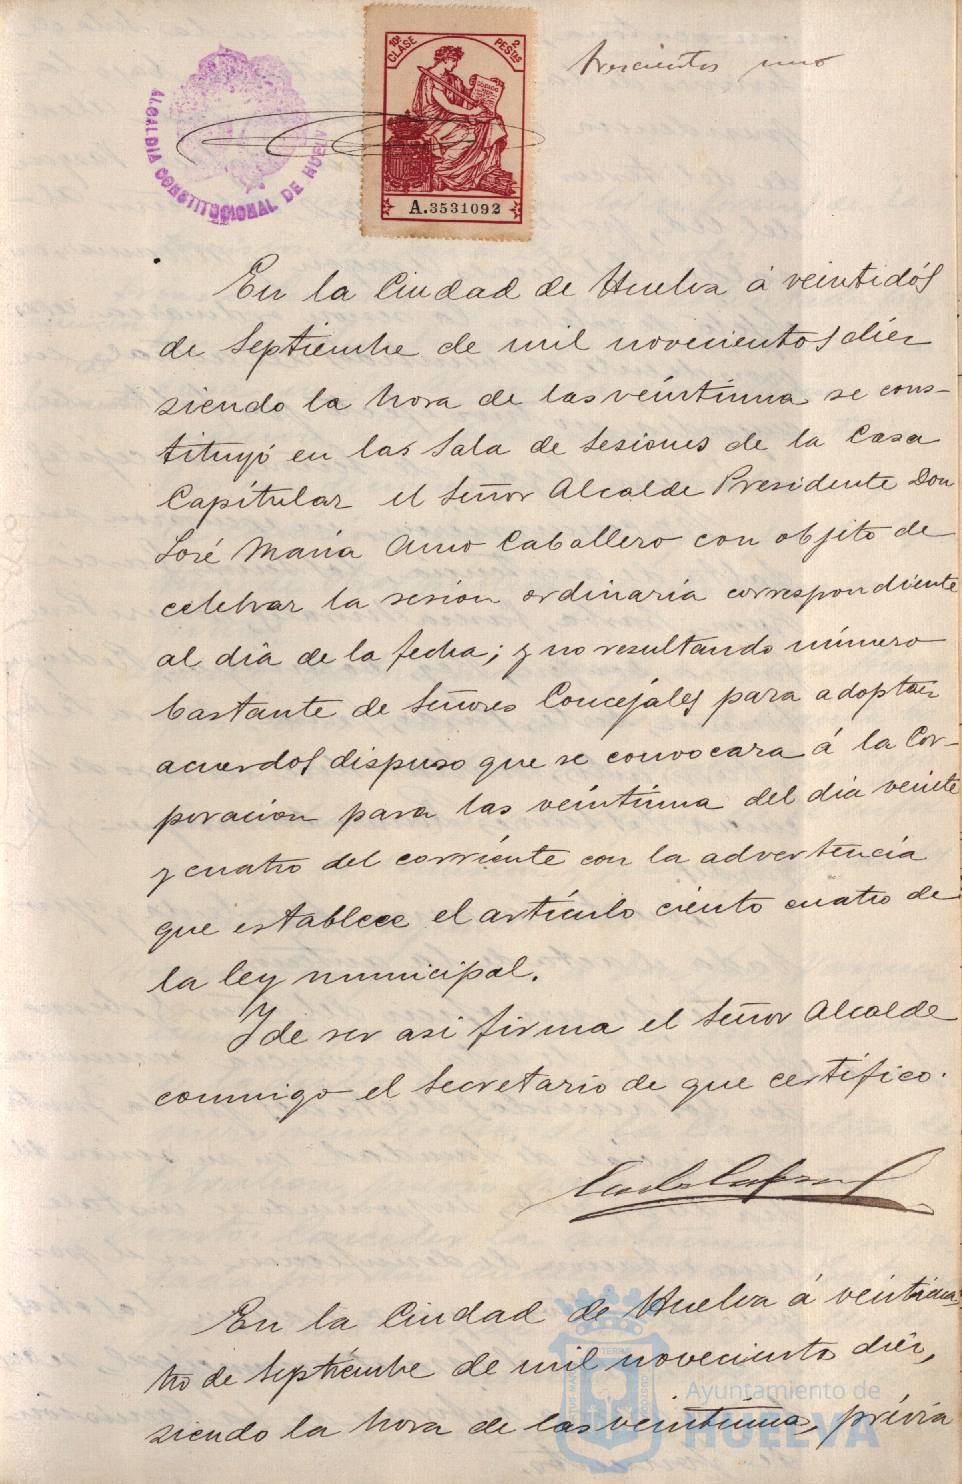 trescientos uno
10ª CLASE
2 PESTAS
A.3531092
ALCALDIA CONSTITUCIONAL DE HUELV
En la Ciudad de Huelva á veintidós
de Septiembre de mil novecientos diez
siendo la hora de las veintiuna se cons-
tituyó en las Sala de Sesiones de la Casa
Capitular el Señor Alcalde Presidente Don
José Maria Amo Caballero con objeto de
celebrar la sesion ordinaria correspondiente
al dia de la fecha; y no resultando número
bastante de Señores Concejales para adoptar
acuerdos dispuso que se convocara á la Cor-
poracion para las veintiuna del dia veinte
y cuatro del corriente con la advertencia
que establece el artículo ciento cuatro de
la ley municipal.
Y de ser asi firma el Señor Alcalde
conmigo el Secretario de que certifico.
En la Ciudad de Huelva á veinticua-
tro de Septiembre de mil novecientos diez,
siendo la hora de las veintiuna, prévia
Ayuntamiento de
HUELVA